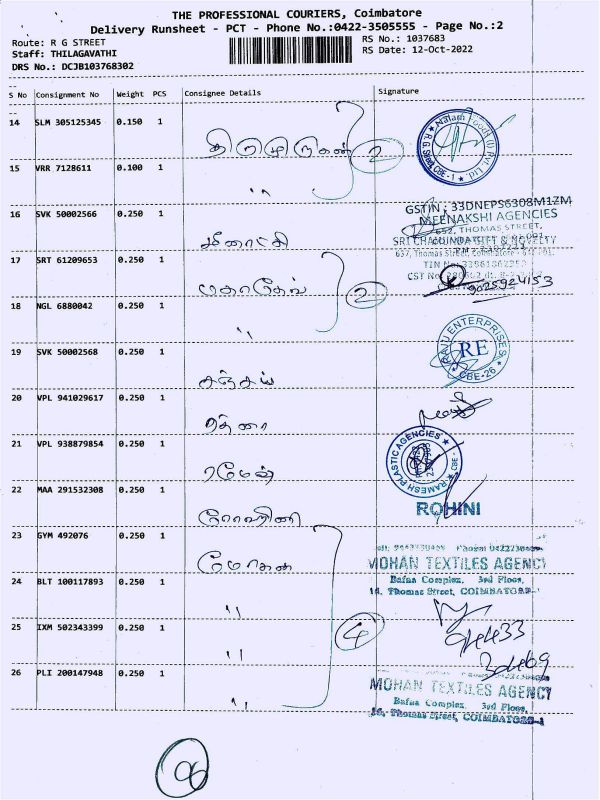 THE PROFESSIONAL COURIERS, Coimbatore
Delivery Runsheet - PCT - Phone No.:0422-3505555 - Page No.:2
Route: R G STREET
RS No.: 1037683
Staff: THILAGAVATHI
RS Date: 12-Oct-2022
DRS No.: DCJB103768302
S No Consignment No Weight PCS Consignee Details Signature
14 SLM 305125345 0.150 1
திருமுருகன் 2
15 VRR 7128611 0.100 1
"
16 SVK 50002566 0.250 1
மீனாட்சி
GSTIN : 33DNEPS6308M1ZM
MEENAKSHI AGENCIES
652, THOMAS STREET,
637, Thomas Street, Coimbatore
17 SRT 61209653 0.250 1
மகாதேவ் 2
9025924153
18 NGL 6880042 0.250 1
"
19 SVK 50002568 0.250 1
சஞ்சய்
RAJU ENTERPRISES
RE
CBE-26
20 VPL 941029617 0.250 1
ரத்னா
21 VPL 938879854 0.250 1
ரமேஷ்
RAMESH PLASTIC AGENCIES
CBE-
22 MAA 291532308 0.250 1
ரோஹிணி
ROHINI
23 GYM 492076 0.250 1
மோகன்
MOHAN TEXTILES AGENCY
Bafna Complex, 3rd Floor,
Thomas Street, COIMBATORE-1
24 BLT 100117893 0.250 1
"
4
25 IXM 502343399 0.250 1
"
26 PLI 200147948 0.250 1
"
MOHAN TEXTILES AGENCY
Bafna Complex, 3rd Floor,
Thomas Street, COIMBATORE-1